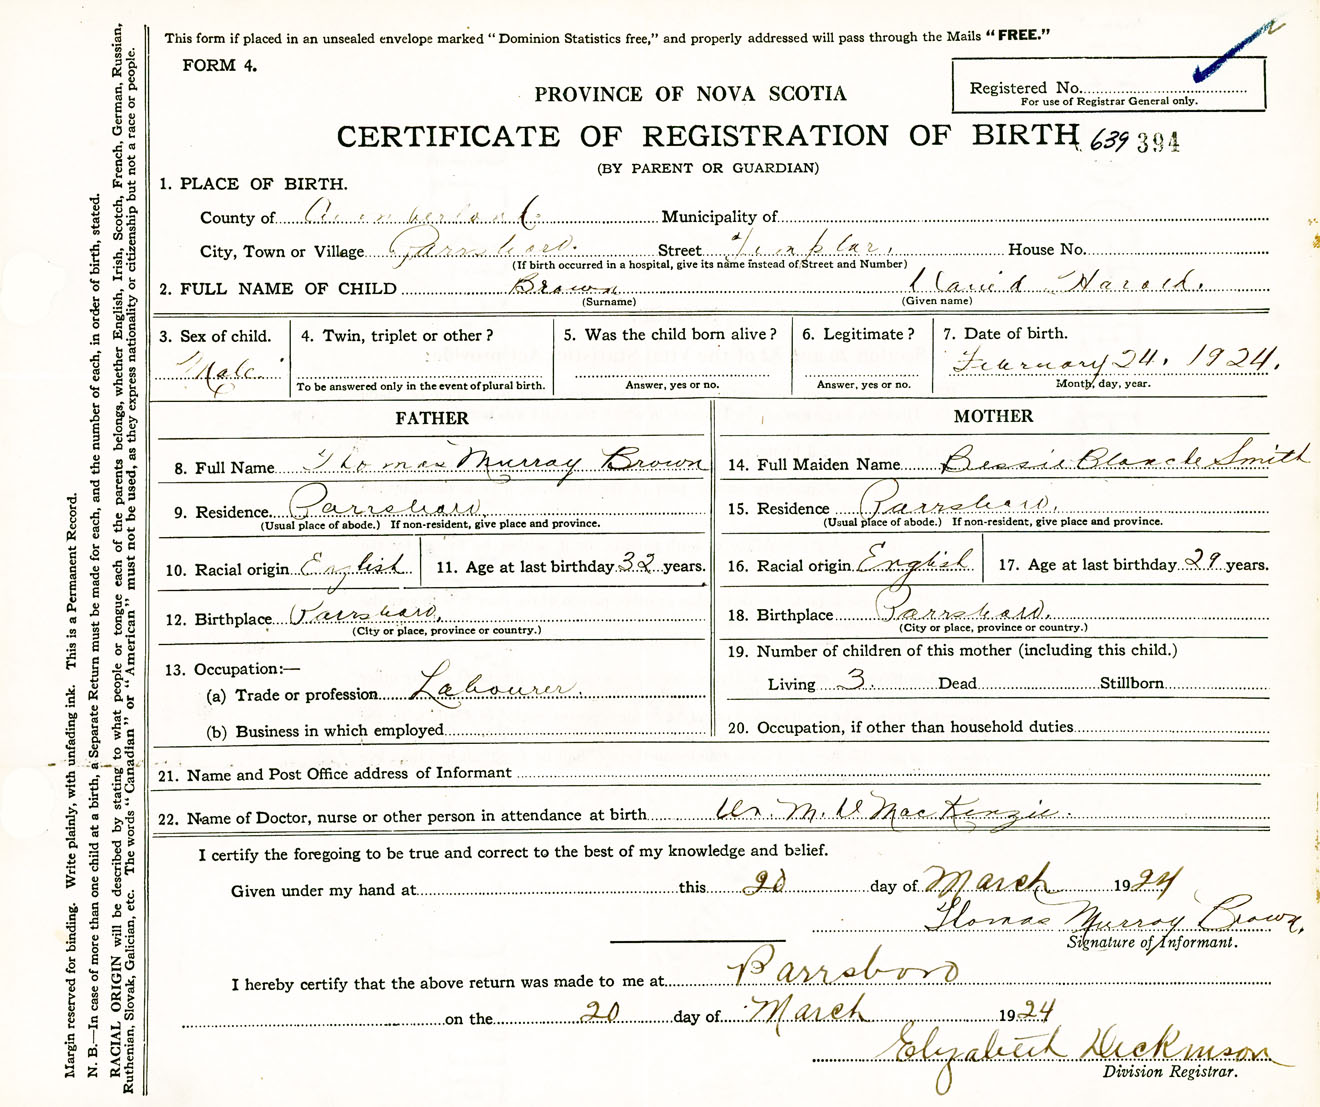 This form if placed in an unsealed envelope marked “Dominion Statistics free,” and properly addressed will pass through the Mails “FREE.”
FORM 4.
Registered No.
For use of Registrar General only.
PROVINCE OF NOVA SCOTIA
CERTIFICATE OF REGISTRATION OF BIRTH 639 394
(BY PARENT OR GUARDIAN)
1. PLACE OF BIRTH.
County of Cumberland Municipality of
City, Town or Village Parrsboro. Street Templar. House No.
(If birth occurred in a hospital, give its name instead of Street and Number)
2. FULL NAME OF CHILD Brown David Harold.
(Surname) (Given name)
3. Sex of child. 4. Twin, triplet or other? 5. Was the child born alive? 6. Legitimate? 7. Date of birth.
Male February 24. 1924.
To be answered only in the event of plural birth. Answer, yes or no. Answer, yes or no. Month, day, year.
FATHER
8. Full Name Thomas Murray Brown
9. Residence Parrsboro.
(Usual place of abode.) If non-resident, give place and province.
10. Racial origin English 11. Age at last birthday 32 years.
12. Birthplace Parrsboro.
(City or place, province or country.)
13. Occupation:—
(a) Trade or profession Labourer.
(b) Business in which employed
MOTHER
14. Full Maiden Name Bessie Blanche Smith
15. Residence Parrsboro.
(Usual place of abode.) If non-resident, give place and province.
16. Racial origin English 17. Age at last birthday 29 years.
18. Birthplace Parrsboro.
(City or place, province or country.)
19. Number of children of this mother (including this child.)
Living 3. Dead Stillborn
20. Occupation, if other than household duties
21. Name and Post Office address of Informant
22. Name of Doctor, nurse or other person in attendance at birth Dr. M. D MacKenzie.
I certify the foregoing to be true and correct to the best of my knowledge and belief.
Given under my hand at this 20 day of March 1924
Thomas Murray Brown.
Signature of Informant.
I hereby certify that the above return was made to me at Parrsboro
on the 20 day of March 1924
Elizabeth Dickinson
Division Registrar.
Margin reserved for binding. Write plainly, with unfading ink. This is a Permanent Record.
N. B.—In case of more than one child at a birth, a Separate Return must be made for each, and the number of each, in order of birth, stated.
RACIAL ORIGIN will be described by stating to what people or tongue each of the parents belongs, whether English, Irish, Scotch, French, German, Russian,
Ruthenian, Slovak, Galician, etc. The words “Canadian” or “American” must not be used, as they express nationality or citizenship but not a race or people.